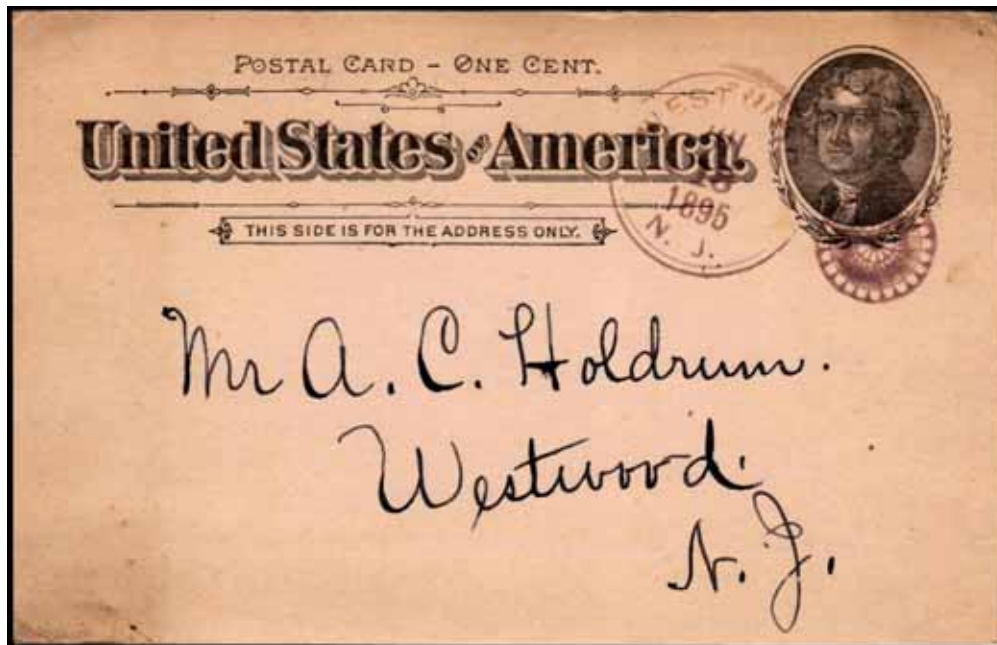 POSTAL CARD – ONE CENT.
United States of America.
THIS SIDE IS FOR THE ADDRESS ONLY.
1895
N. J.
Mr A. C. Holdrum.
Westwood.
N. J.